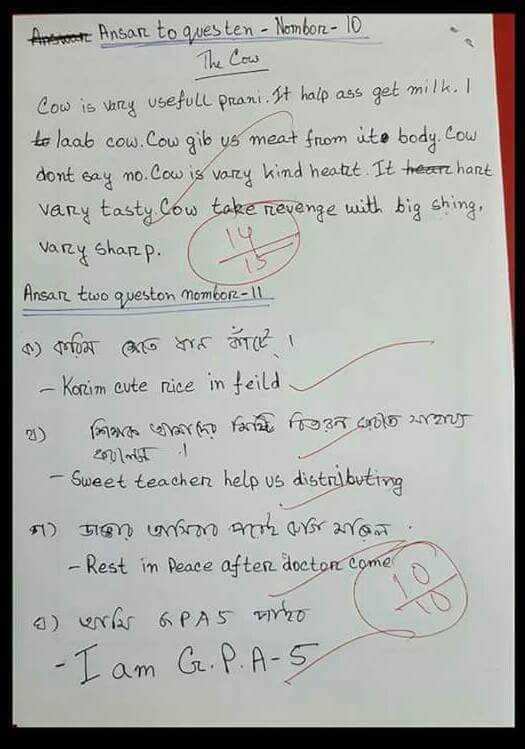 Ansar to questen - Nombor - 10
The Cow
Cow is vary usefull prani. It halp ass get milk. I
laab cow. Cow gib us meat from it body. Cow
dont say no. Cow is vary kind heatrt. It hart
vary tasty. Cow take revenge with big shing,
vary sharp.
14
15
Ansar two queston nombor-11
ক) করিম ক্ষেতে ধান কাঁটে ।
- Korim cute rice in feild
খ) শিক্ষক আমাদের মিষ্টি বিতরন
।
- Sweet teacher help us distributing
গ) ডাক্তার আসিবার
- Rest in Peace after doctor come
10
10
ঘ) আমি GPA5 পাইব
- I am G.P.A-5